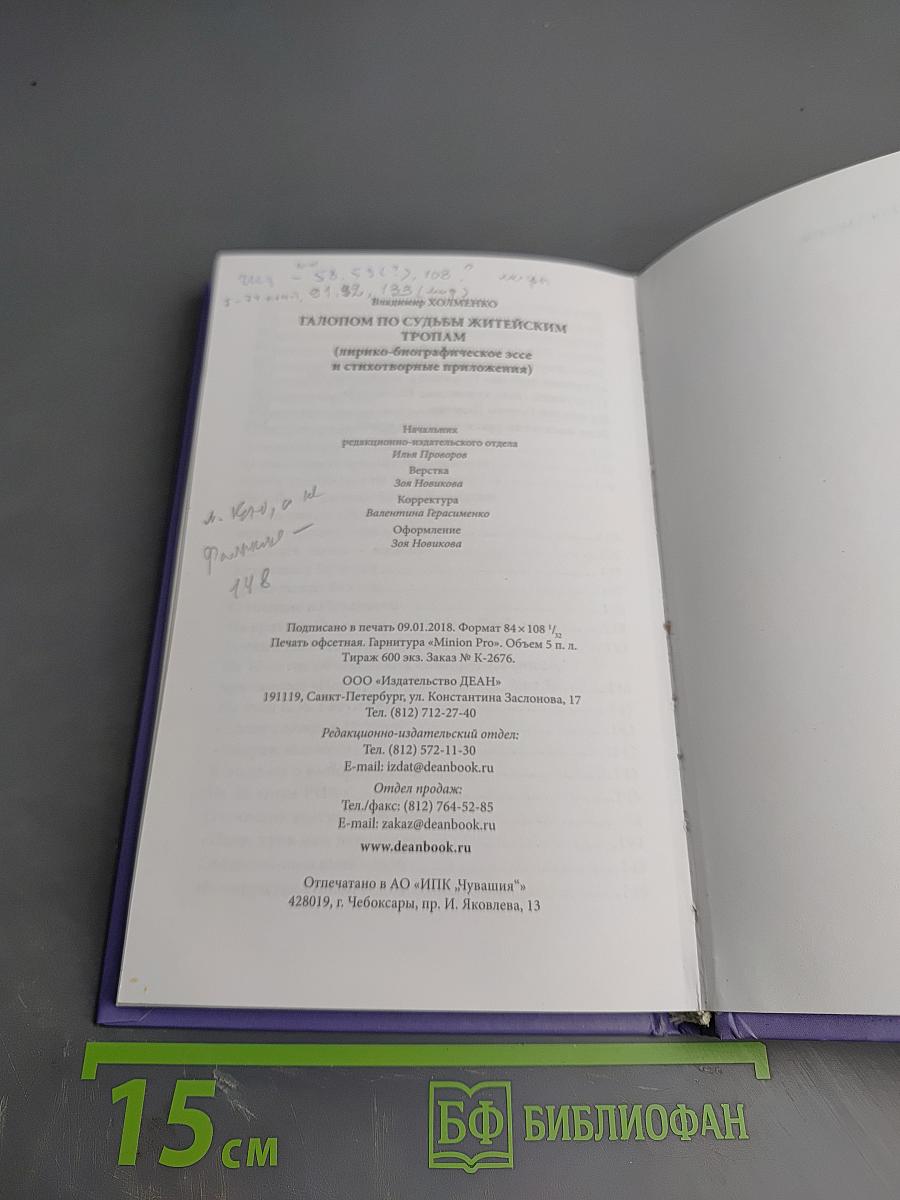 58. 59(?), 108 ?
81. 92, 133
Владимир ХОЛМЕНКО
ГАЛОПОМ ПО СУДЬБЫ ЖИТЕЙСКИМ
ТРОПАМ
(лирико-биографическое эссе
и стихотворные приложения)
Начальник
редакционно-издательского отдела
Илья Проворов
Верстка
Зоя Новикова
Корректура
Валентина Герасименко
Оформление
Зоя Новикова
148
Подписано в печать 09.01.2018. Формат 84 × 108 1/32
Печать офсетная. Гарнитура «Minion Pro». Объем 5 п. л.
Тираж 600 экз. Заказ № К-2676.
ООО «Издательство ДЕАН»
191119, Санкт-Петербург, ул. Константина Заслонова, 17
Тел. (812) 712-27-40
Редакционно-издательский отдел:
Тел. (812) 572-11-30
E-mail: izdat@deanbook.ru
Отдел продаж:
Тел./факс: (812) 764-52-85
E-mail: zakaz@deanbook.ru
www.deanbook.ru
Отпечатано в АО «ИПК „Чувашия“»
428019, г. Чебоксары, пр. И. Яковлева, 13
15 см
БФ БИБЛИОФАН